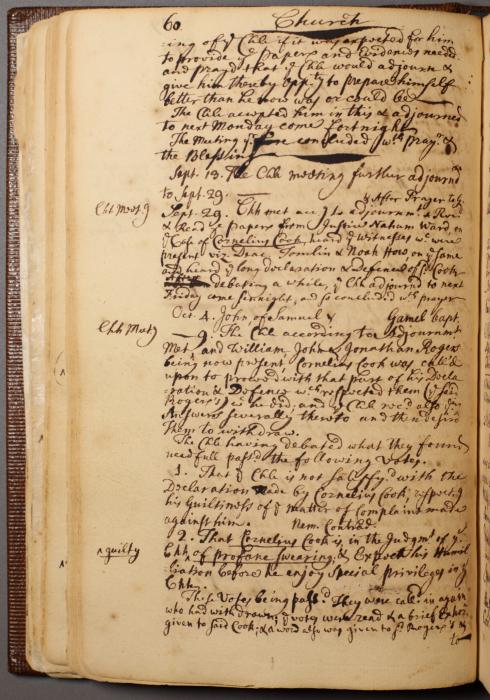 60 Church
ing of yͤ Chh if it was expected for him
to provide yͤ papers and Evidences needed
and pray'd that yͤ Chh would adjourn &
give him thereby oppᵗy to prepare himself
better than he now was or could be
The Chh accepted him in this & adjourned
to next Monday come fortnight
The Meeting yⁿ concluded wᵗʰ prayʳ &
the Blessing
Sept. 13. The Chh meeting further adjournd
to Sept. 29.
& After Prayer
Chh Meetg
Sept. 29. Chh met accg to adjournmt.
& Read yͤ papers from Justice Nahum Ward, on
yͤ Case of Cornelius Cook, heard yͤ witnesses wᶜ were
present viz Isaac Tomlin & Noah How on yͤ same
and heard yͤ long declaration & defence of sᵈ Cook
After debating a while, yͤ Chh adjournd to next
Friday come sennight, and so concluded wᵗʰ prayer
Oct 4. John of Samuel Gamel bapt.
Chh Meetg
9. The Chh according to Adjournmt
Met, and William John & Jonathan Rogers
being now present Cornelius Cook was call'd
upon to proceed with that part of his Decla
ration & Defence wᶜʰ respected them (yͤ said
Rogers's) as he did and yͤ Chh recd also their
Answers severally thereto and then desird
them to withdraw.
The Chh having debated what they found
needfull pass'd the following Votes.
1. That yͤ Chh is not satisfy'd with the
Declaration made by Cornelius Cook, respectg
his Guiltiness of yͤ matter of Complaint made
against him. Nem. Contrad.
2. That Cornelius Cook is in the Judgmᵗ of yͤ
^ guilty
Chh, ^ of profane swearing; & Expect his Humil
liation before he enjoy Special Privileges in yͤ
Chh.
These Votes being pass'd They were call'd in again
who had withdrawn; yͤ votes were read & a brief
given to said Cook; & a word also was given to sᵈ Rogers's
to